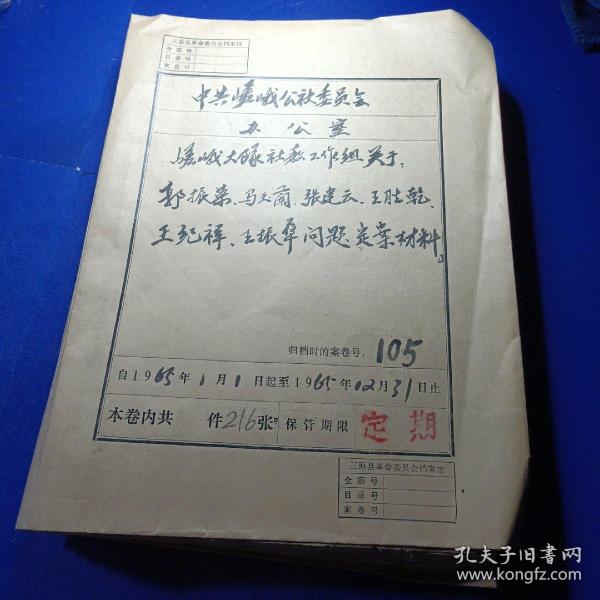 三原县革命委员会档案馆
全宗号
目录号
案卷号
中共嵯峨公社委员会
办公室
嵯峨大队社教工作组关于:
郭振荣、马玉兰、张建云、王胜乾、
王纪祥、王振华问题定案材料。
归档时的案卷号: 105
自1965年1月1日起至1965年12月31日止
本卷内共 件216张 保管期限 定期
三原县革命委员会档案馆
全宗号
目录号
案卷号
孔夫子旧书网
www.kongfz.com